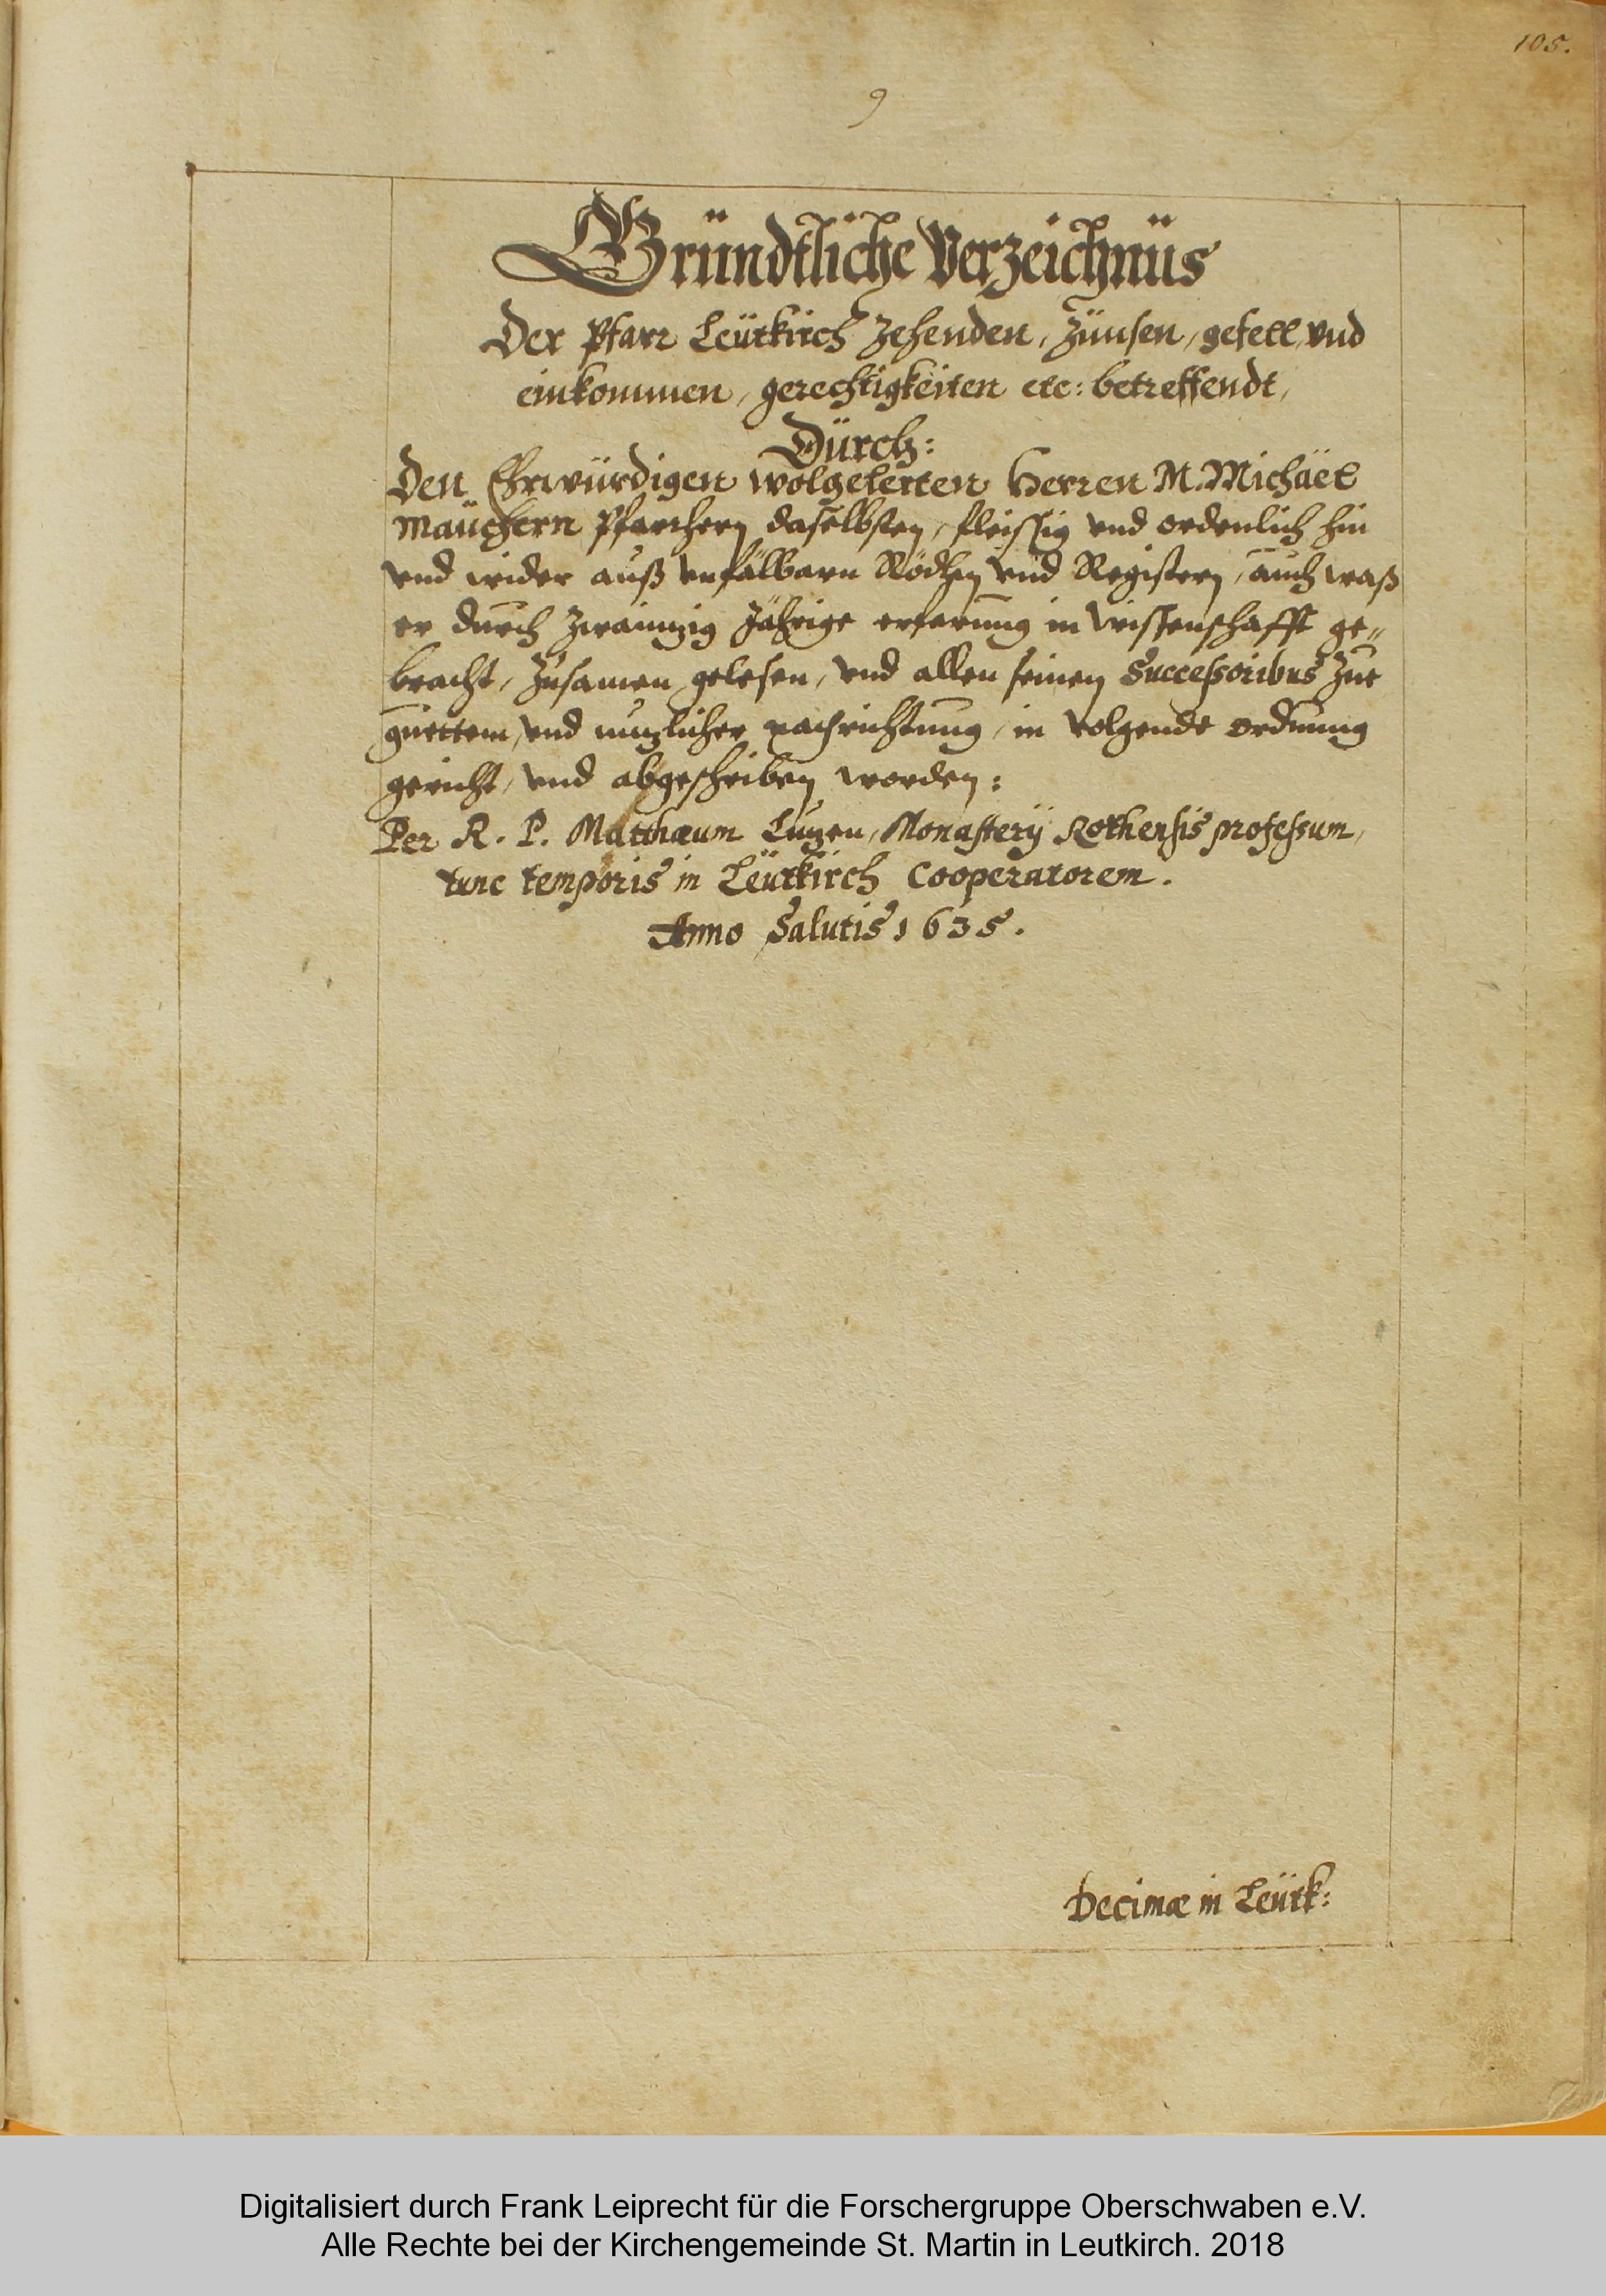 105.
9
Gründtliche Verzeichnüs
Der Pfarr Leütkirch Zehenden, Zünsen, gefell, vnd
einkommen, gerechtigkeiten etc: betreffendt,
Dürch:
Den Ehrwürdigen wolgelerten Herren M. Michäel
Maüchern Pfarrhern daselbsten, fleissig vnd ordenlich hin
vnd wider auß vnfälbarn Rödlen vnd Registern, auch waß
er durch zwainzig Jährige erfarung in wissenschafft ge„
bracht, Zusamen gelesen, vnd allen seinen Successoribus Zue
guettem, vnd nuzlicher nachrichtung, in volgende ordnung
gericht, vnd abgeschriben worden:
Per R. P. Matthæum Luzen, Monasterÿ Rothensis professum,
tunc temporis in Leütkirch Cooperatorem.
Anno Salutis 1635.
Decimæ in Leütk:
Digitalisiert durch Frank Leiprecht für die Forschergruppe Oberschwaben e.V.
Alle Rechte bei der Kirchengemeinde St. Martin in Leutkirch. 2018